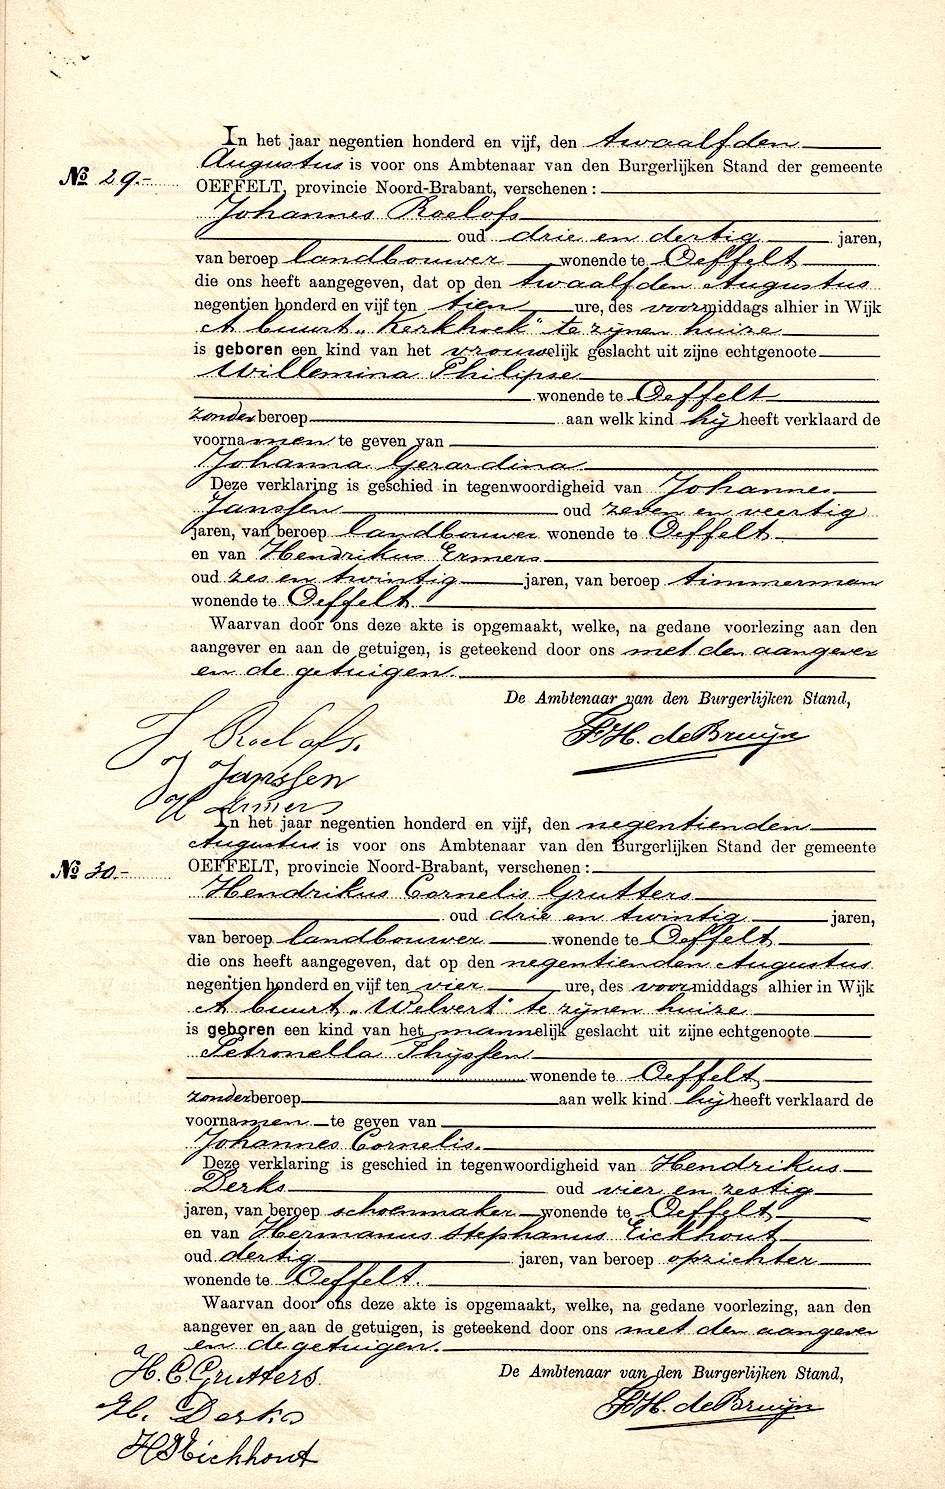 In het jaar negentien honderd en vijf, den twaalfden
Augustus is voor ons Ambtenaar van den Burgerlijken Stand der gemeente
No 29.-
OEFFELT, provincie Noord-Brabant, verschenen:
Johannes Roelofs
oud drie en dertig jaren,
van beroep landbouwer wonende te Oeffelt
die ons heeft aangegeven, dat op den twaalfden Augustus
negentien honderd en vijf ten tien ure, des voormiddags alhier in Wijk
A buurt „Kerkhoek" te zijnen huize
is geboren een kind van het vrouwelijk geslacht uit zijne echtgenoote
Willemina Philipse
wonende te Oeffelt
zonder beroep aan welk kind hij heeft verklaard de
voornamen te geven van
Johanna Gerardina.
Deze verklaring is geschied in tegenwoordigheid van Johannes
Janssen oud zeven en veertig
jaren, van beroep landbouwer wonende te Oeffelt
en van Hendrikus Ermers
oud zes en twintig jaren, van beroep timmerman
wonende te Oeffelt
Waarvan door ons deze akte is opgemaakt, welke, na gedane voorlezing aan den
aangever en aan de getuigen, is geteekend door ons met den aangever
en de getuigen.
De Ambtenaar van den Burgerlijken Stand,
J Roelofs.
FH. de Bruijn
J Janssen
H Ermers
In het jaar negentien honderd en vijf, den negentienden
Augustus is voor ons Ambtenaar van den Burgerlijken Stand der gemeente
No 30.-
OEFFELT, provincie Noord-Brabant, verschenen:
Hendrikus Cornelis Grutters
oud drie en twintig jaren,
van beroep landbouwer wonende te Oeffelt
die ons heeft aangegeven, dat op den negentienden Augustus
negentien honderd en vijf ten vier ure, des voormiddags alhier in Wijk
A buurt „Welvert" te zijnen huize
is geboren een kind van het mannelijk geslacht uit zijne echtgenoote
Petronella Thijssen
wonende te Oeffelt
zonder beroep aan welk kind hij heeft verklaard de
voornamen te geven van
Johannes Cornelis.
Deze verklaring is geschied in tegenwoordigheid van Hendrikus
Derks oud vier en zestig
jaren, van beroep schoenmaker wonende te Oeffelt
en van Hermanus Stephanus Eickhout
oud dertig jaren, van beroep opzichter
wonende te Oeffelt.
Waarvan door ons deze akte is opgemaakt, welke, na gedane voorlezing, aan den
aangever en aan de getuigen, is geteekend door ons met den aangever
en de getuigen.
H. C Grutters
De Ambtenaar van den Burgerlijken Stand,
H. Derks
FH. de Bruijn
HSEickhout